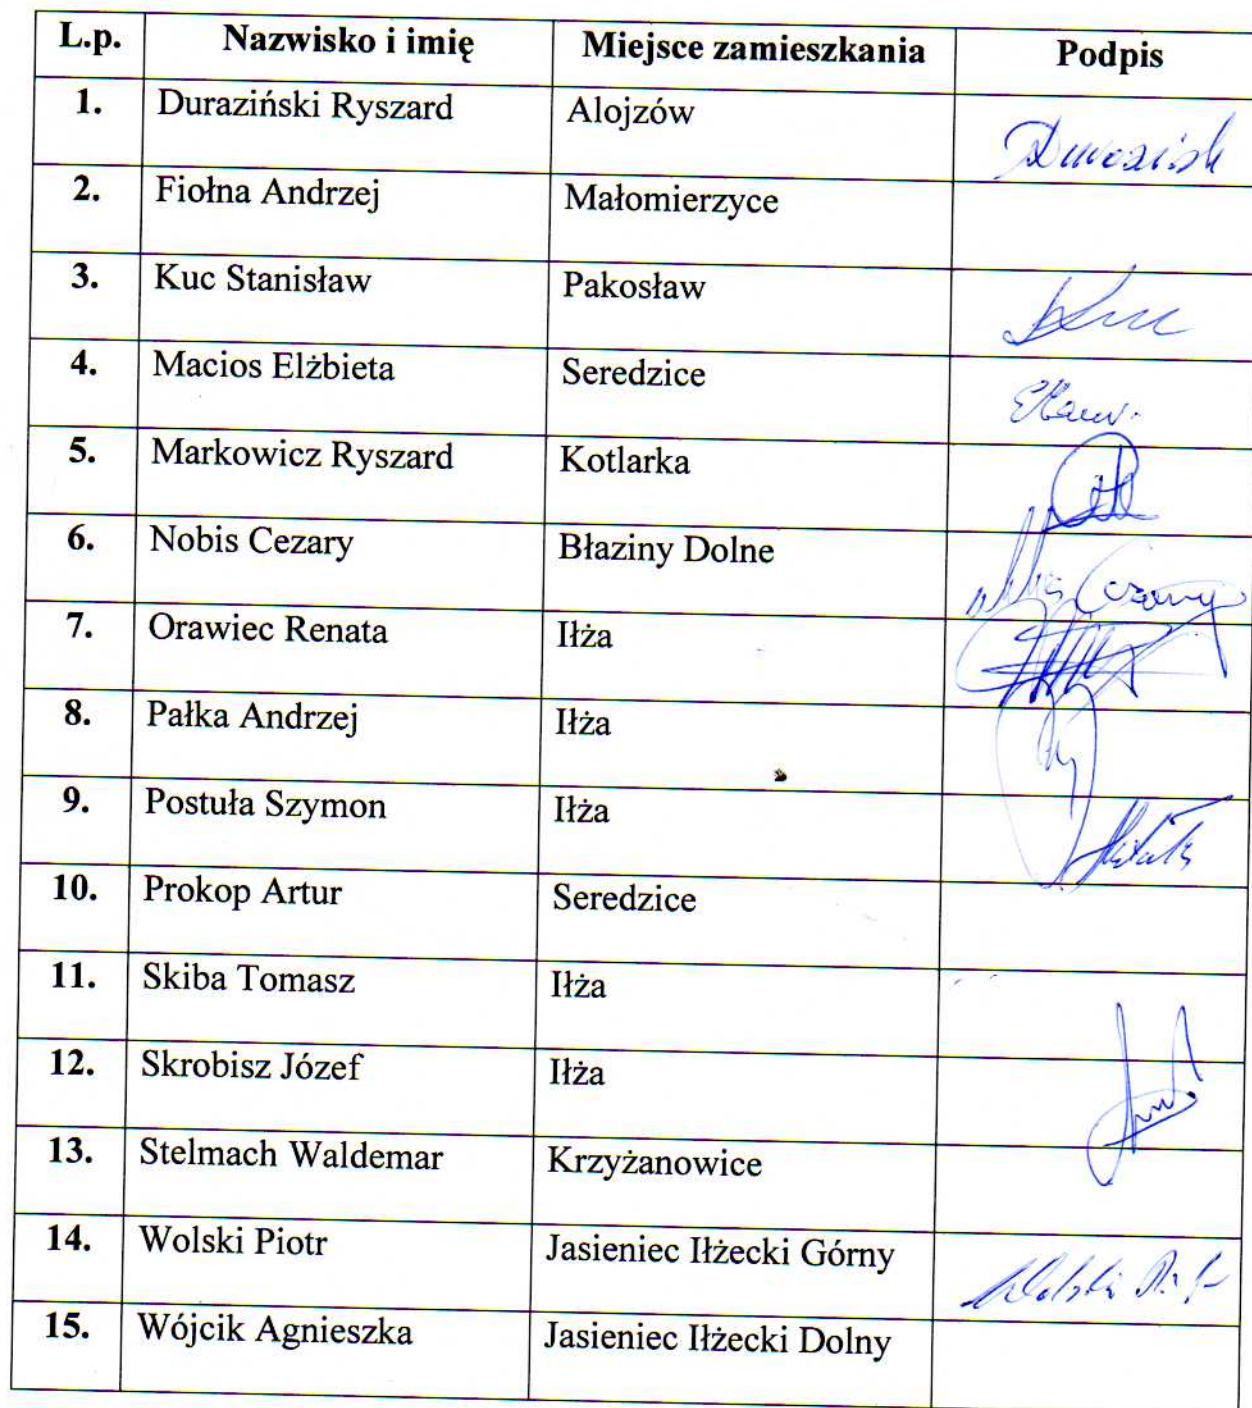 L.p. Nazwisko i imię Miejsce zamieszkania Podpis
1. Duraziński Ryszard Alojzów
2. Fiołna Andrzej Małomierzyce
3. Kuc Stanisław Pakosław
4. Macios Elżbieta Seredzice
5. Markowicz Ryszard Kotlarka
6. Nobis Cezary Błaziny Dolne Cezary
7. Orawiec Renata Iłża
8. Pałka Andrzej Iłża
9. Postuła Szymon Iłża
10. Prokop Artur Seredzice
11. Skiba Tomasz Iłża
12. Skrobisz Józef Iłża
13. Stelmach Waldemar Krzyżanowice
14. Wolski Piotr Jasieniec Iłżecki Górny
15. Wójcik Agnieszka Jasieniec Iłżecki Dolny